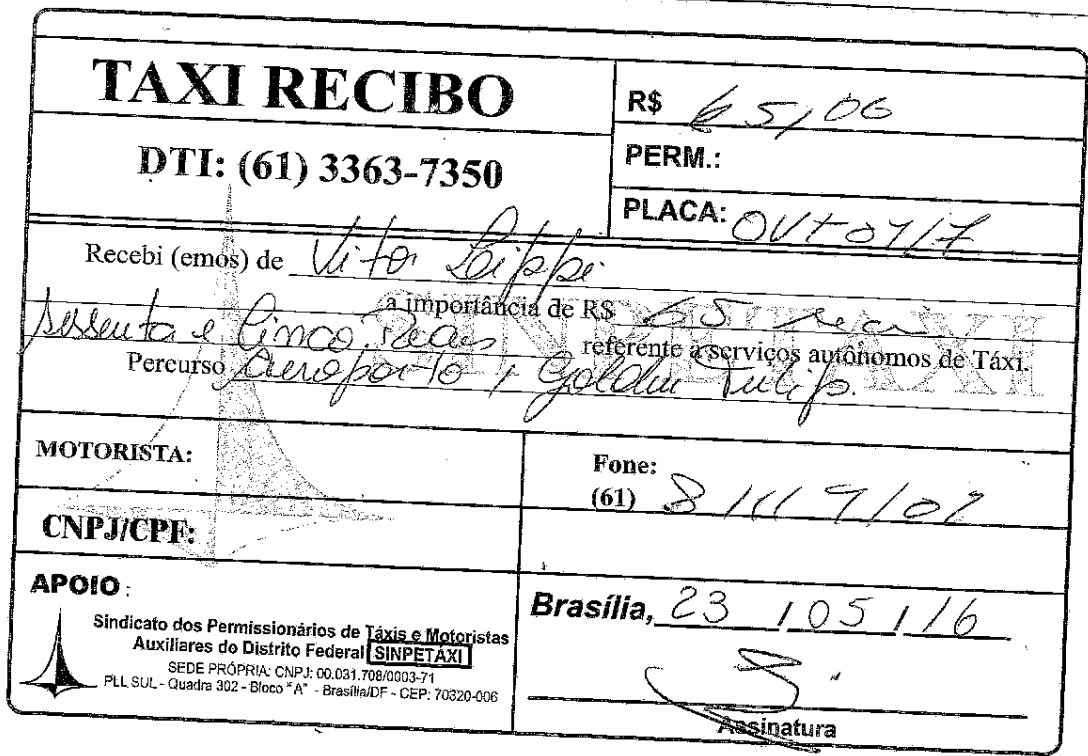 TAXI RECIBO
DTI: (61) 3363-7350
R$ 65,00
PERM.:
PLACA: OVT0417
Recebi (emos) de Vitor Lippi
a importância de R$ 65 reais
sessenta e Cinco Reais referente a serviços autônomos de Táxi.
Percurso Aeroporto, Golden Tulip.
MOTORISTA:
Fone:
(61) 8111
CNPJ/CPF:
APOIO:
Sindicato dos Permissionários de Táxis e Motoristas
Auxiliares do Distrito Federal SINPETÁXI
SEDE PRÓPRIA: CNPJ: 00.031.708/0003-71
PLL SUL - Quadra 302 - Bloco "A" - Brasília/DF - CEP: 70320-006
Brasília, 23 / 05 / 16
Assinatura